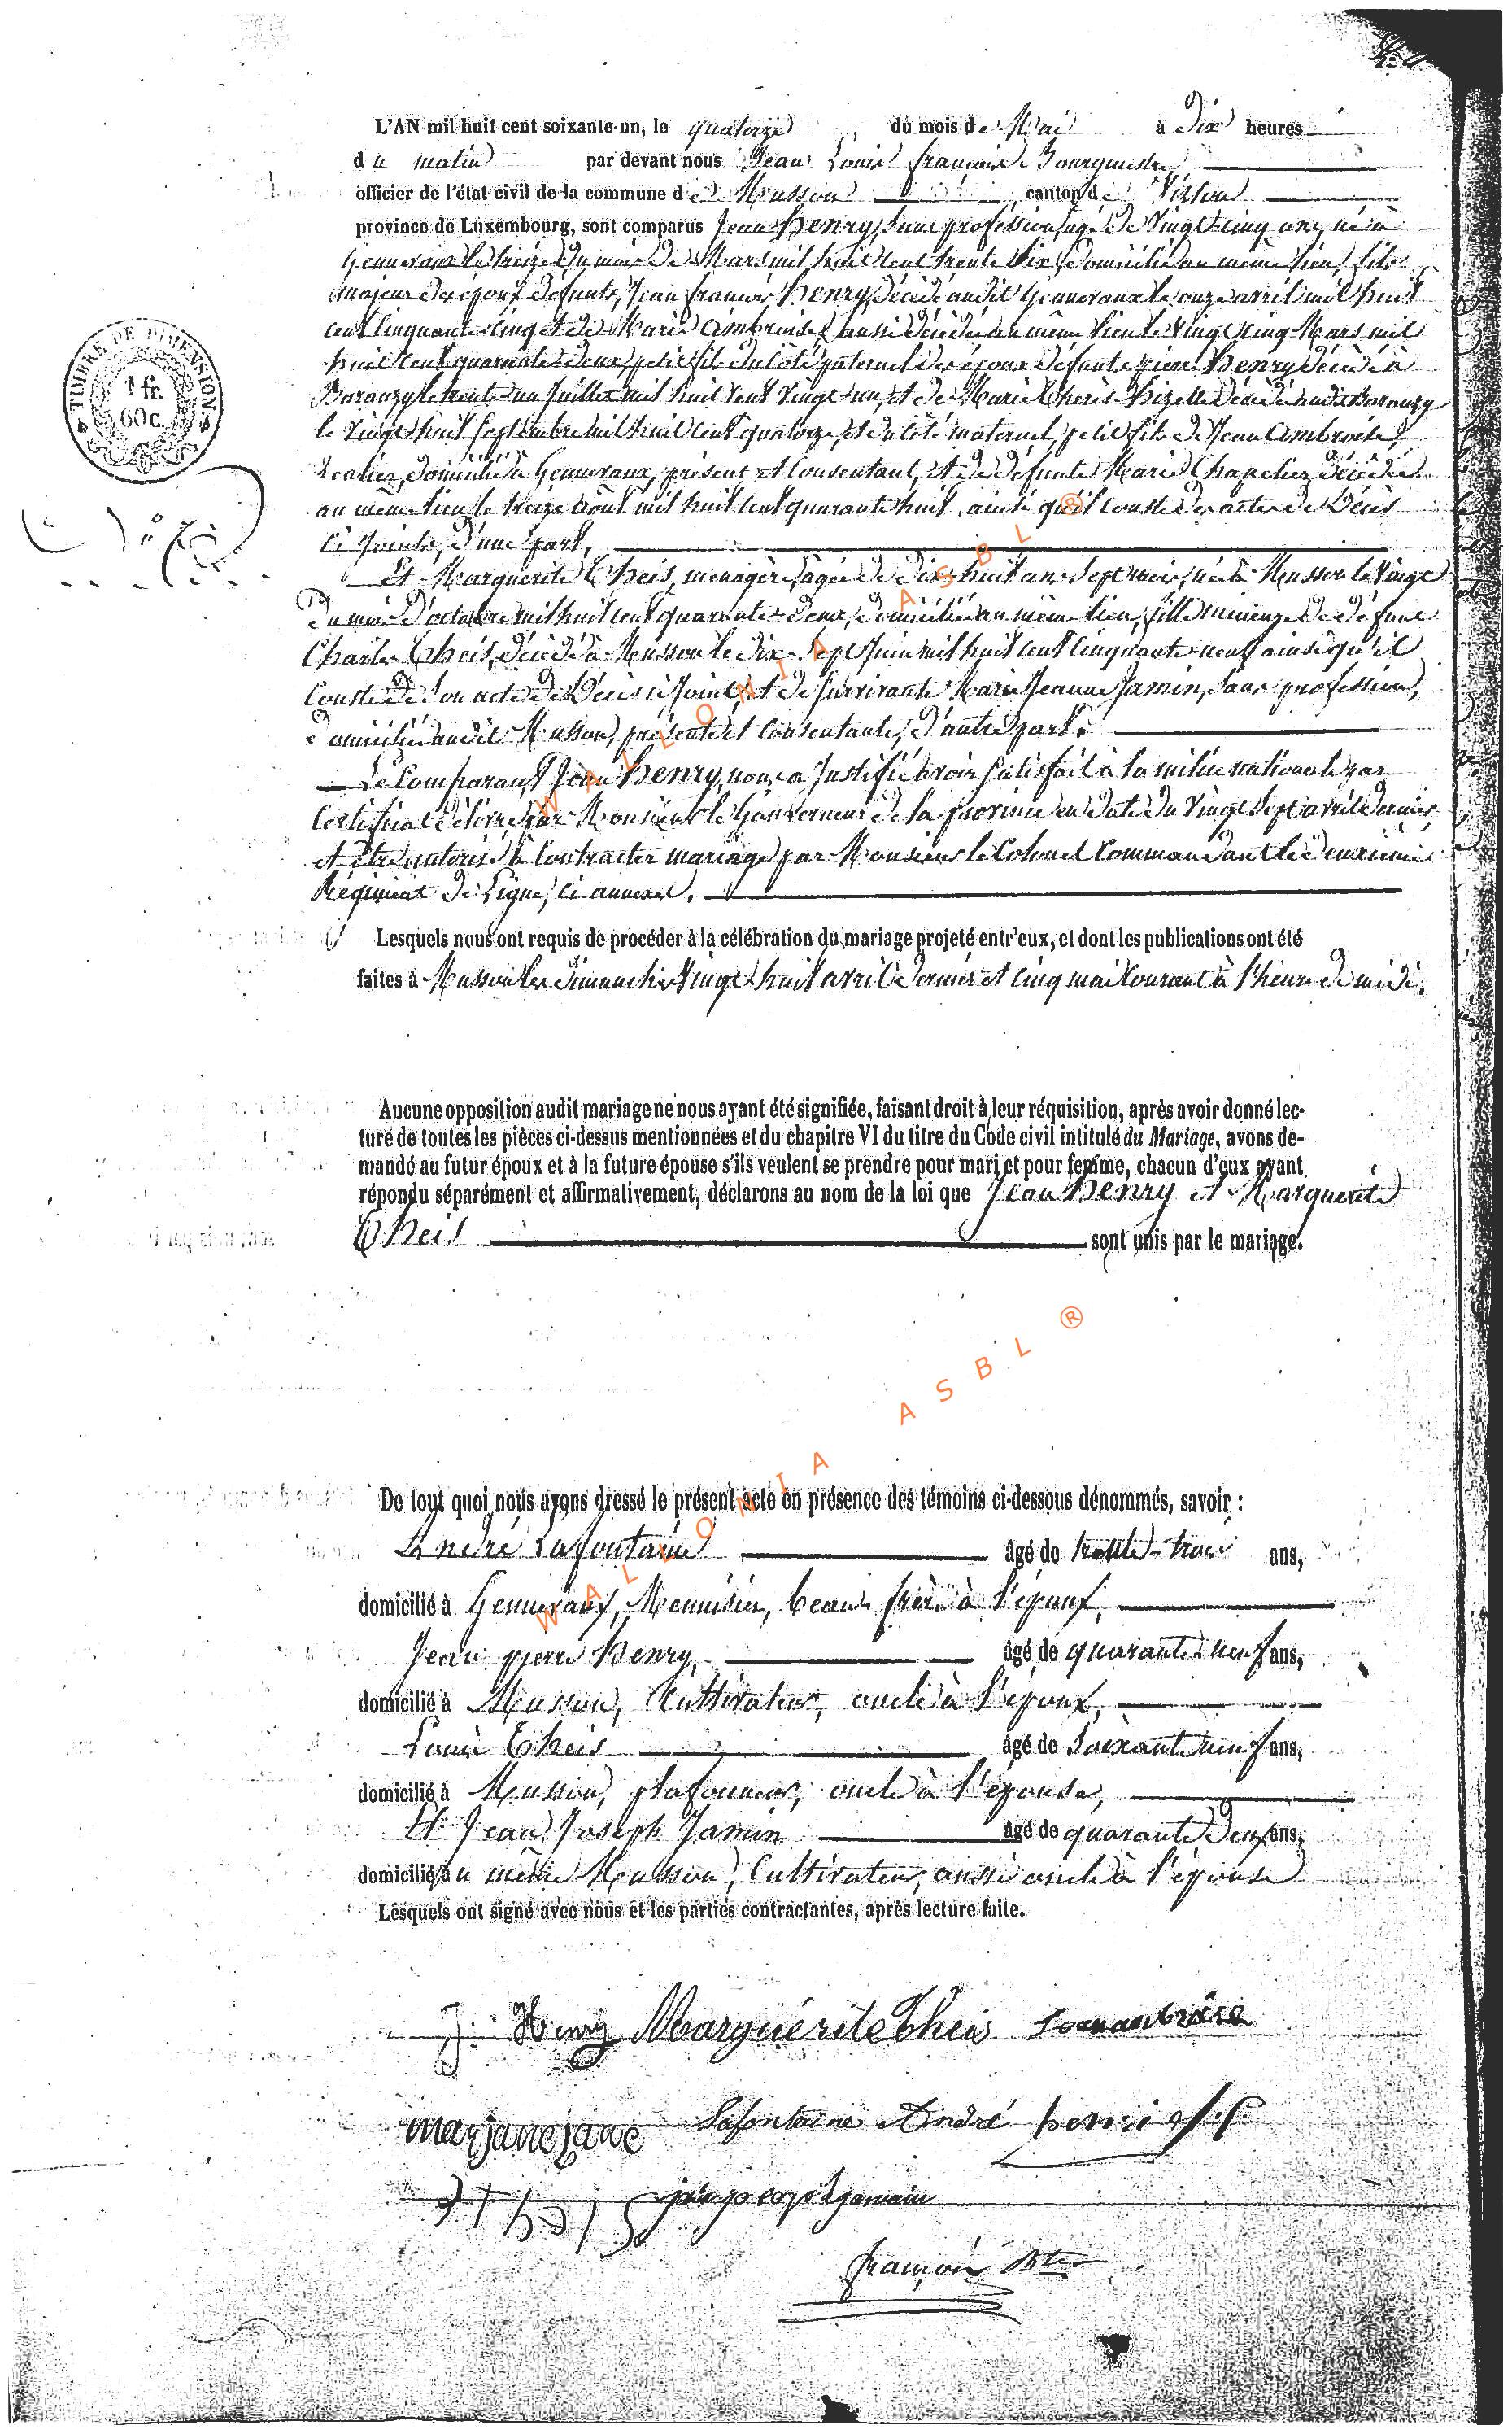 L'AN mil huit cent soixante-un, le quatorze du mois de Mai à Dix heures
du matin par devant nous Jean Louis françois Bourgmestre
officier de l'état civil de la commune de Musson canton de Virton
province de Luxembourg, sont comparus Jean Henry, sans profession, âgé de Vingt-cinq ans, né à
Gennevaux le treize du mois de Mars mil huit cent trente six, domicilié au même lieu, fils
majeur des époux défunts, Jean françois Henry, décédé audit Gennevaux le onze avril mil huit
cent cinquante-cinq et de Marie Ambroise, aussi décédée au même lieu le vingt cinq Mars mil
huit cent quarante-deux, petit fils du côté paternel des époux défunts pierre Henry décédé à
Baranzy le trente un Juillet mil huit cent vingt-un, et de Marie Therès Hizette décédée audit Baranzy
le Vingt huit septembre mil huit cent quatorze, et du côté maternel, petit fils de Jean Ambroise,
rentier, domicilié à Gennevaux, présent et consentant, et de défunte Marie Chapelier, décédée
au même lieu le treize août mil huit cent quarante huit, ainsi qu'il conste des actes de Décès
ci joints, d'une part,
Et Marguerite Theis, menagère, âgée de dix-huit ans sept mois, née à Musson le vingt
Du mois d'octobre mil huit cent quarante-deux, domiciliée au même lieu, fille mineure de défunt
Charles Theis, décédé à Musson le dix-sept Juin mil huit cent cinquante-neuf ainsi qu'il
conste de son acte de Décès ci joint, et de survivante Marie Jeanne Jamin, sans profession,
domiciliée audit Musson, présente et consentante, d'autre part.
Le comparant Jean Henry, nous a justifié avoir satisfait à la milice nationale par
Certificat délivré par Monsieur le Gouverneur de la province en date du Vingt Sept avril dernier,
et être autorisé à contracter mariage par Monsieur le Colonel Commandant le deuxième
Régiment de Ligne, ci annexé.
Lesquels nous ont requis de procéder à la célébration du mariage projeté entr'eux, et dont les publications ont été
faites à Musson les dimanches Vingt-huit avril dernier et cinq mai courant à l'heure de midi.
TIMBRE DE DIMENSION
1 fr.
60 c.
Aucune opposition audit mariage ne nous ayant été signifiée, faisant droit à leur réquisition, après avoir donné lec-
ture de toutes les pièces ci-dessus mentionnées et du chapitre VI du titre du Code civil intitulé du Mariage, avons de-
mandé au futur époux et à la future épouse s'ils veulent se prendre pour mari et pour femme, chacun d'eux ayant
répondu séparément et affirmativement, déclarons au nom de la loi que Jean Henry et Marguerite
Theis sont unis par le mariage.
De tout quoi nous avons dressé le présent acte en présence des témoins ci-dessous dénommés, savoir :
André Lafontaine âgé de trente-trois ans,
domicilié à Gennevaux, Menuisier, beau-frère à l'époux,
Jean pierre Henry, âgé de quarante-neuf ans,
domicilié à Musson, Cultivateur, oncle à l'époux,
Louis Theis âgé de Soixante neuf ans,
domicilié à Musson, plafonneur, oncle à l'épouse,
Et Jean Joseph Jamin âgé de quarante Deux ans,
domicilié au même Musson, Cultivateur, aussi oncle à l'épouse
Lesquels ont signé avec nous et les parties contractantes, après lecture faite.
J. Henry Marguérite Theis
marjane jame Lafontaine André henri
françois
WALLONIA ASBL ®
WALLONIA ASBL ®